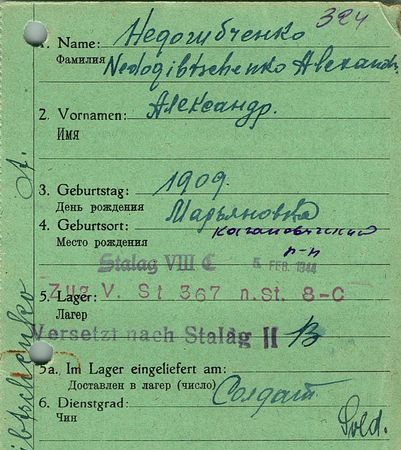 324
1. Name: Недогибченко
Фамилия Nedogibtschenko Alexandr
2. Vornamen: Александр.
Имя
3. Geburtstag: 1909.
День рождения
4. Geburtsort: Марьяновка
Место рождения Кагановический р-н
Stalag VIII C 5. FEB. 1944
5. Lager: Zug V. St 367 n. St. 8-C
Лагер
Versetzt nach Stalag II B
5a. Im Lager eingeliefert am:
Доставлен в лагер (число)
6. Dienstgrad: Солдат
Чин Sold.